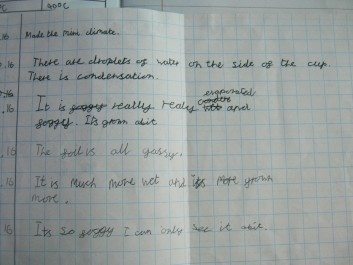 40°C
.16 Made the mini climate.
.16 There are droplets of water on the side of the cup.
There is condensation.
evaporated
.16 It is soggy really realy wet and
soggy. Its grown abit
.16 The soil is all gassy.
.16 It is much more wet and its more grown
more.
.16 Its so soggy I can only see it abit.